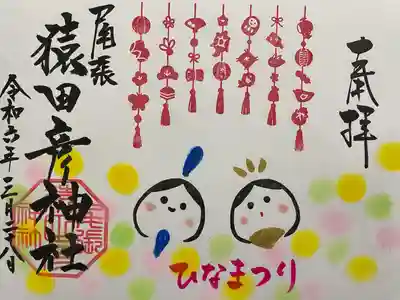 奉拝
ひなまつり
尾張
猿田彦神社
令和六年三月